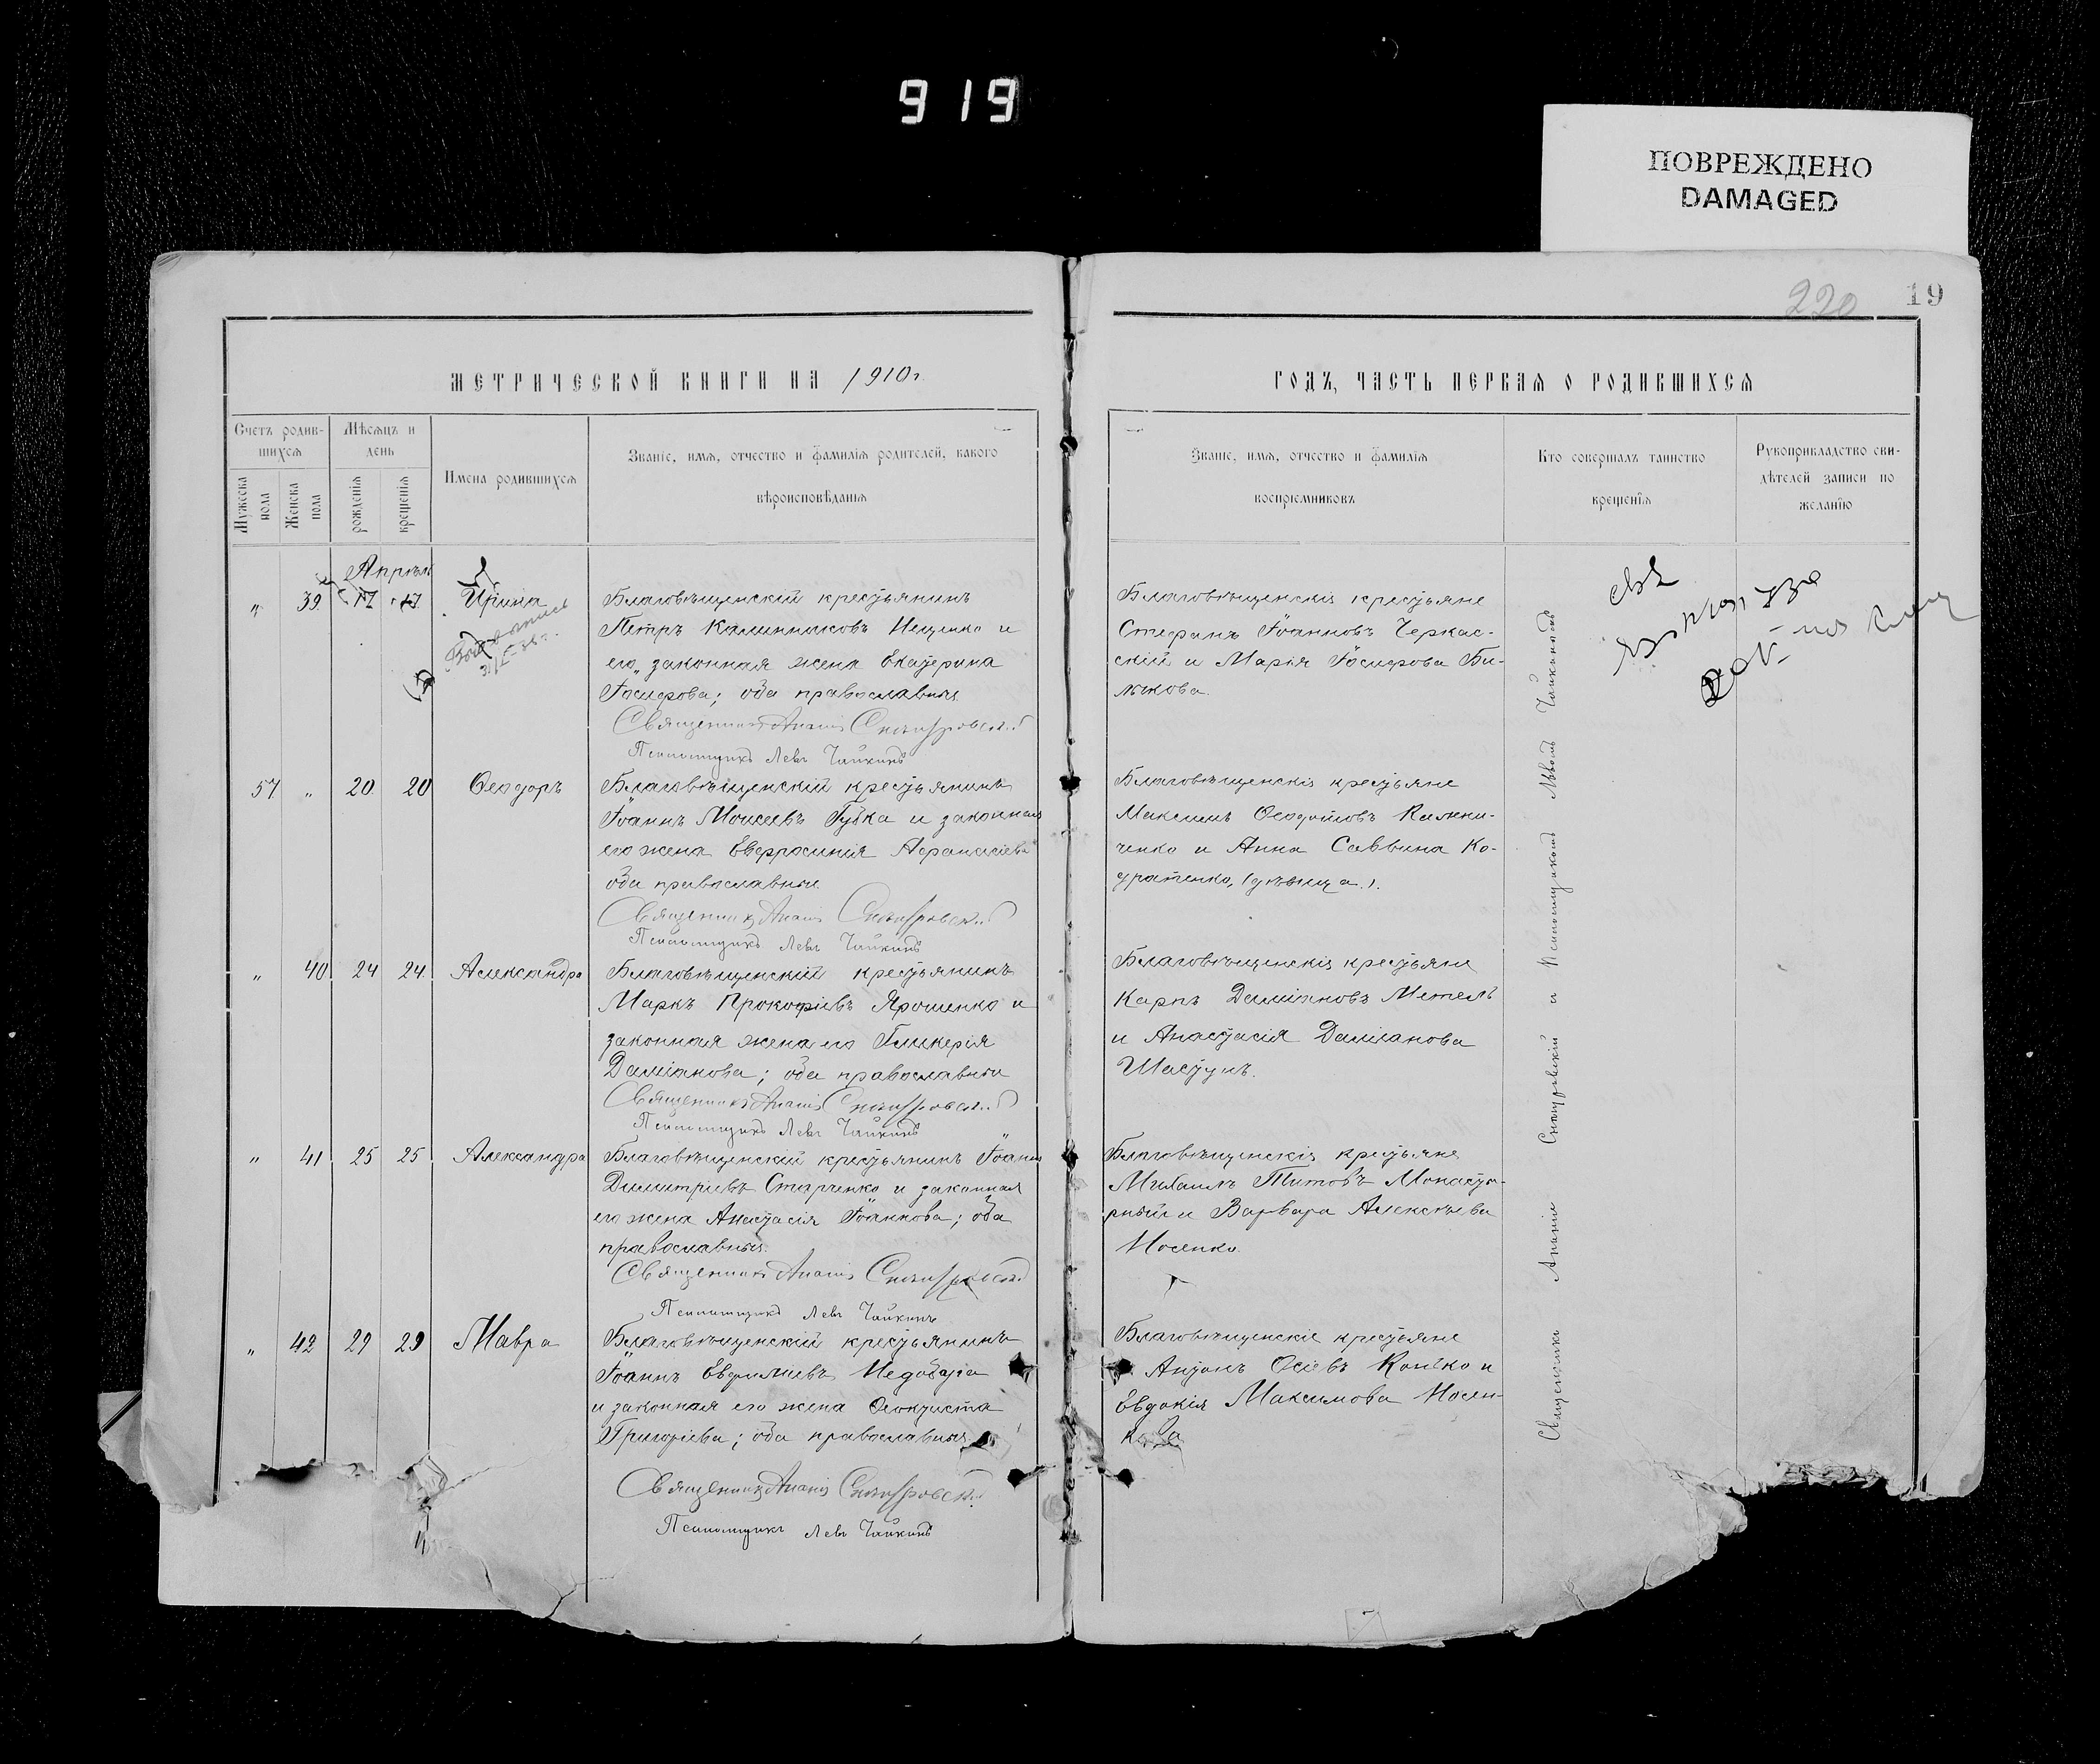 919
ПОВРЕЖДЕНО
DAMAGED
220
19
МЕТРИЧЕСКОЙ КНИГИ НА 1910 г.
ГОДЪ, ЧАСТЬ ПЕРВАЯ О РОДИВШИХСЯ
Счетъ родив-
шихся
Мужеска пола
Женска пола
Мѣсяцъ и
день
рожденія
крещенія
Имена родившихся
Званіе, имя, отчество и фамилія родителей, какого
вѣроисповѣданія
Званіе, имя, отчество и фамилія
воспріемниковъ
Кто совершалъ таинство
крещенія
Рукоприкладство сви-
дѣтелей записи по
желанію
Апрѣль
" 39 17 17 Ирина
Благовѣщенскій крестьянинъ
Петръ Каллиниковъ Ищенко и
его законная жена Екатерина
Іосифова; оба православные
Священникъ Ананія
Псаломщикъ Левъ Чайкинъ
Благовѣщенскіе крестьяне
Стефанъ Іоанновъ Черкас-
скій и Марія Іосифова Би-
лыкова.
57 " 20 20 Ѳеодоръ
Благовѣщенскій крестьянинъ
Іоаннъ Моисеевъ Губка и законная
его жена Евфросинія Афанасіева
оба православные
Священникъ Ананія
Псаломщикъ Левъ Чайкинъ
Благовѣщенскіе крестьяне
Максимъ Калини-
ченко и Анна Саввина Ко-
дратенко, (дѣвица).
" 40 24 24 Александра
Благовѣщенскій крестьянинъ
Маркъ Прокофіевъ Ярошенко и
законная жена его Гликерія
Даміанова; оба православные
Священникъ Ананія
Псаломщикъ Левъ Чайкинъ
Благовѣщенскіе крестьяне
Карпъ Даміановъ Метель
и Анастасія Даміанова
Шастунъ.
" 41 25 25 Александра
Благовѣщенскій крестьянинъ Іоаннъ
Димитріевъ Старченко и законная
его жена Анастасія Іоаннова; оба
православные.
Священникъ Ананія
Псаломщикъ Левъ Чайкинъ
Благовѣщенскіе крестьяне
Михаилъ Титовъ Монасты-
рный и Варвара Алексѣева
Носенко.
" 42 29 29 Мавра
Благовѣщенскій крестьянинъ
Іоаннъ Евфиміевъ Недобѣга
и законная его жена Ѳеоктиста
Григоріева; оба православные
Священникъ Ананія
Псаломщикъ Левъ Чайкинъ
Благовѣщенскіе крестьяне
Антонъ Осіевъ и
Евдокія Максимова Носен-
кова
Священникъ Ананія и Псаломщикомъ Львомъ Чайкинымъ